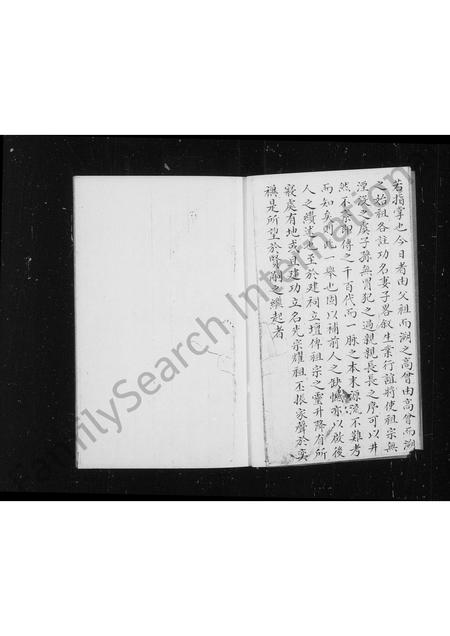 若指掌也今日者由父祖而溯之高曾由高曾而溯
之始祖各註功名妻子畧叙生業行誼將使祖宗無
湮沒之虞子孫無冒犯之過親親長長之序可以井
然不紊即傳之千百代而一脉之本末源流不難考
而知矣則此一舉也固以補前人之缺憾亦以啟後
人之續述也至於建祠立壇俾祖宗之靈升降有所
寢處有地或且建功立名光宗耀祖丕振家聲於奕
禩是所望於賢嗣之繼起者
FamilySearch International